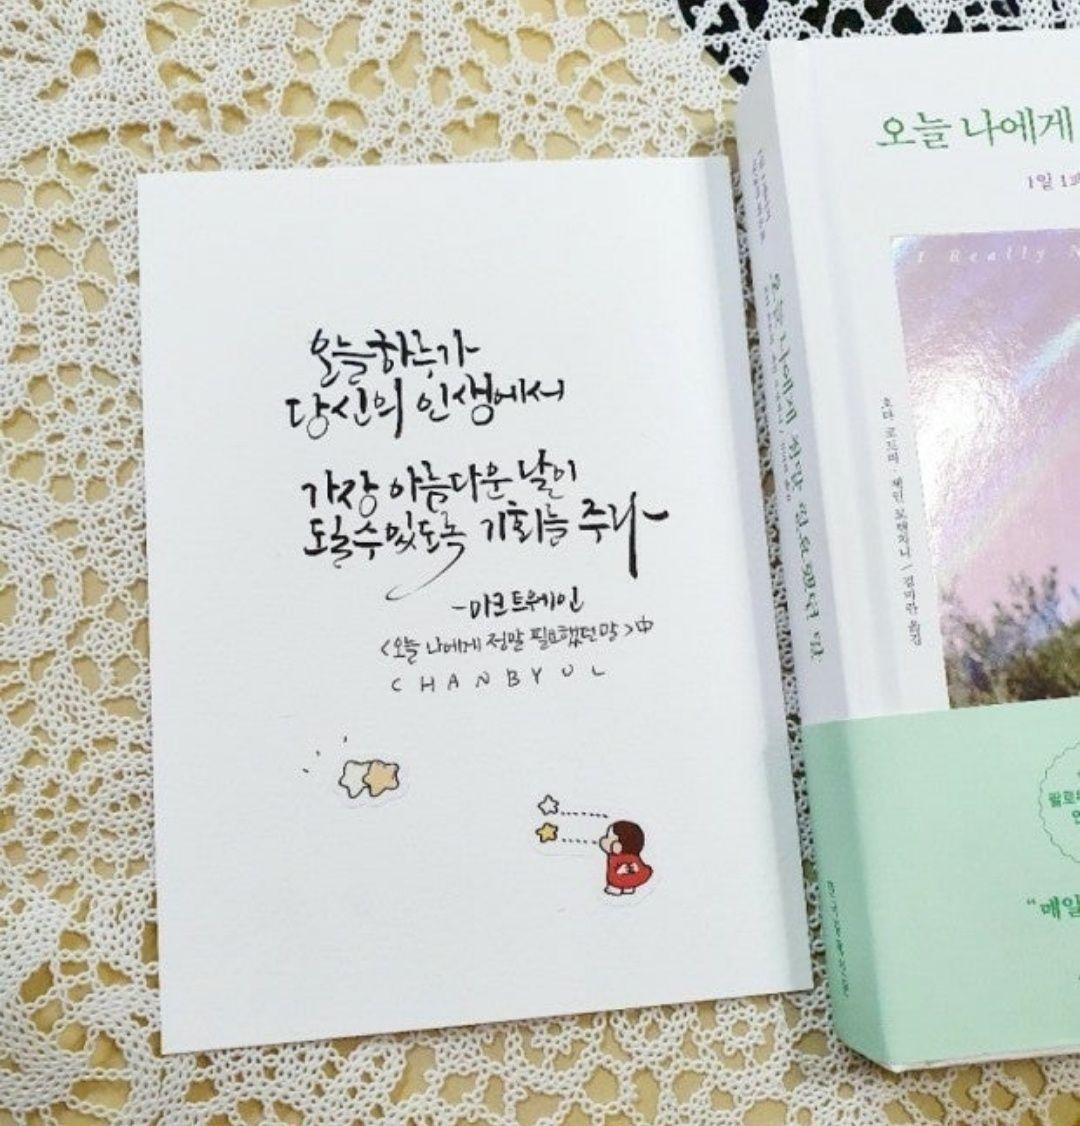 오늘 하루가
당신의 인생에서
가장 아름다운 날이
도일수있도록 기회를 주라
-마크 트웨인
<오늘 나에게 정말 필요했던 말>中
CHANBYUL
오늘 나에게
1일 1
I Really N
오늘 나에게 정말 필요했던 말
호다 코트비 제인 로렌치니 / 김미란 옮김
팔로
"매일